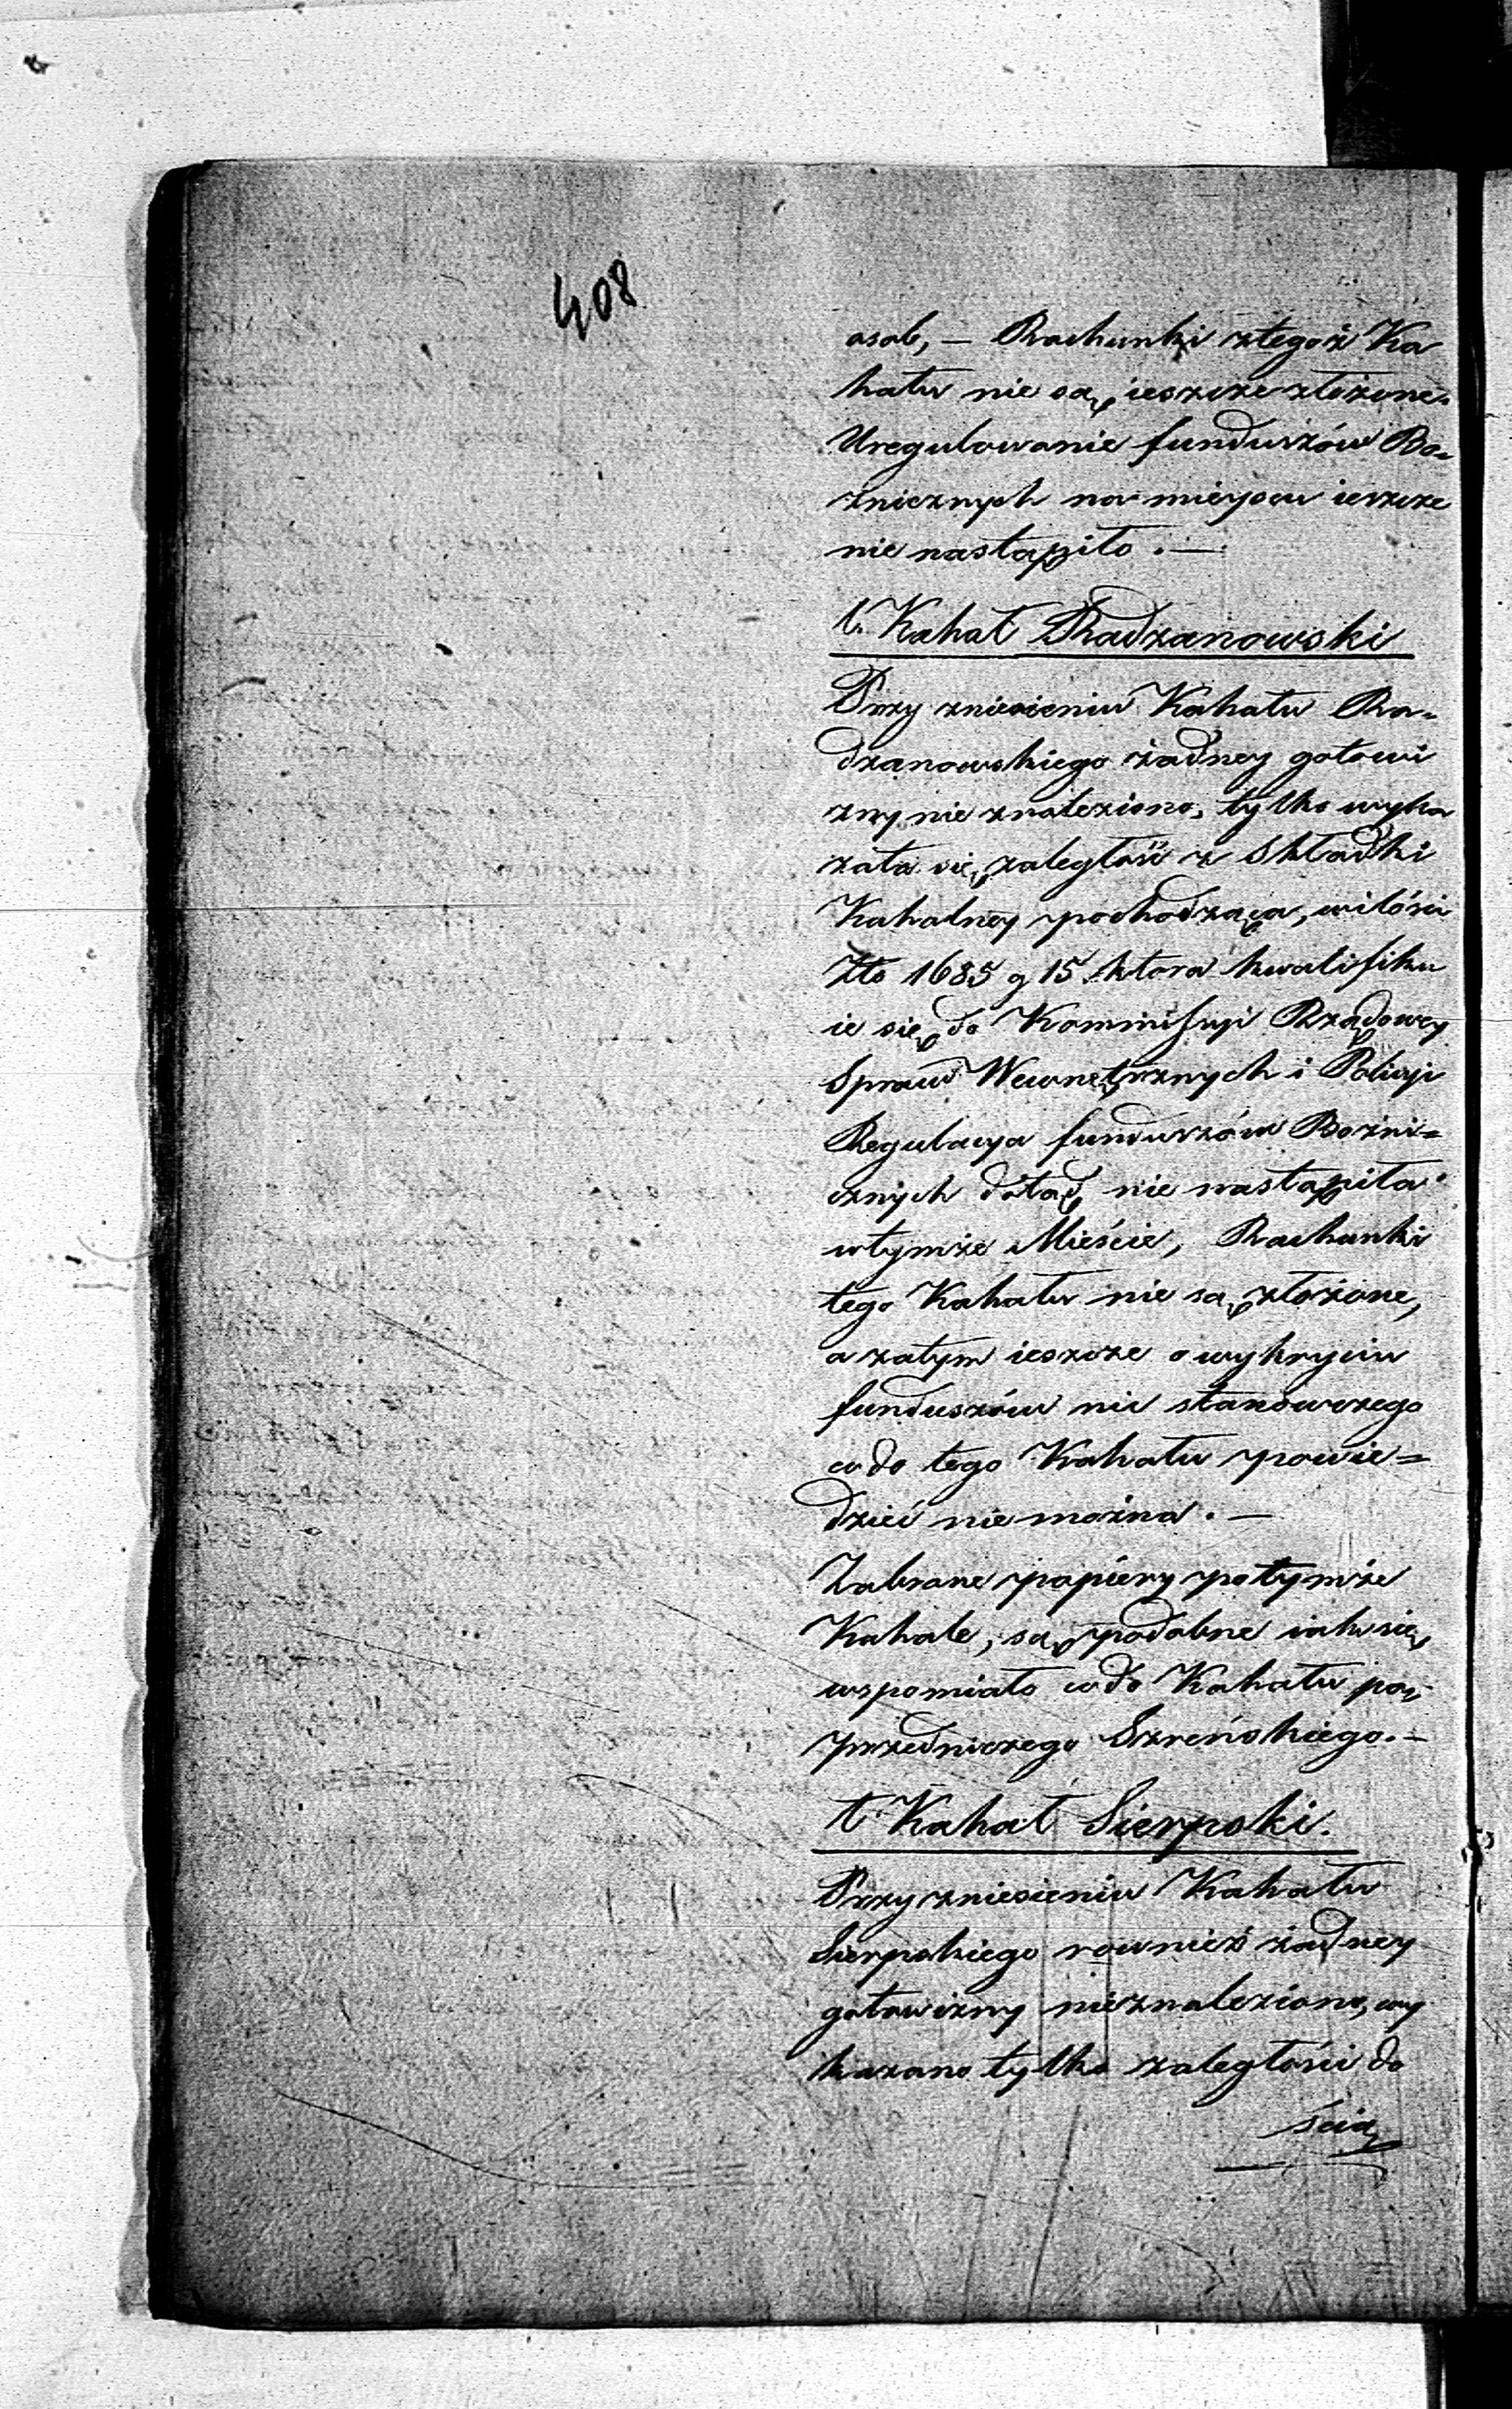 408
osob, — Rachunki ztegoż Ka
hału nie są ieszcze złożone.
Uregulowanie funduszów Bo=
żnicznych na mieyscu ieszcze
nie nastąpiło. —
t. Kahał Radzanowski
Przy zniesieniu Kahału Ra=
dzanowskiego żadney gotowi
zny nie znaleziono, tylko wyka
zała się zaległość z Składki
Kahalney pochodząca, wilości
Złp 1685 g 15 ktora kwalifiku
ie się do Kommissyi Rządowey
Spraw Wewnętrznych i Policyi
Regulacya funduszów Bożni=
cznych dotąd nie nastąpiła
wtymże Mieście, Rachunki
tego Kahału nie są złożone,
a zatym ieszcze o wykryciu
funduszów nic stanowczego
codo tego Kahału powie=
dzieć nie można. —
Zabrane papiery potymże
Kahale, są podobne iak się
wspomiało codo Kahału po=
przedniczego Szreńskiego. —
t Kahał Sierpski.
Przy zniesieniu Kahału
Sierpskiego rownież żadney
gotowizny nieznaleziono, wy
kazano tylko zaległości do
ścią